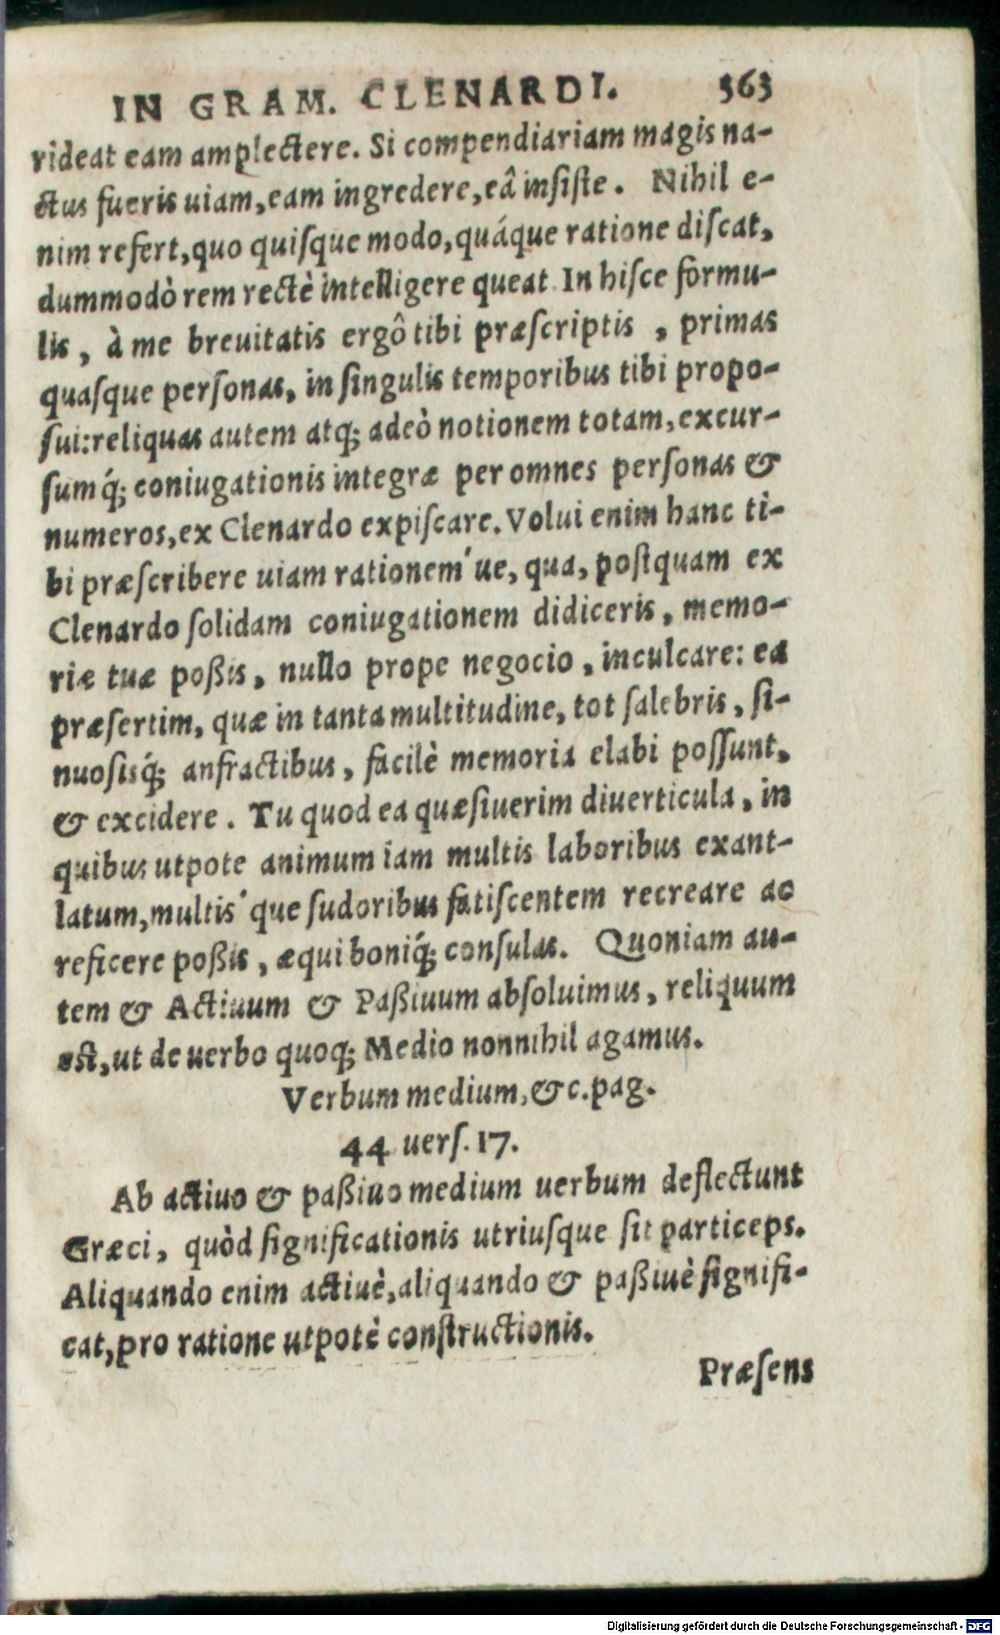 IN GRAM. CLENARDI. 363
rideat eam amplectere. Si compendiariam magis na-
ctus fueris uiam, eam ingredere, eâ insiste. Nihil e-
nim refert, quo quisque modo, quáque ratione discat,
dummodò rem rectè intelligere queat. In hisce formu-
lis, à me breuitatis ergô tibi præscriptis, primas
quasque personas, in singulis temporibus tibi propo-
sui: reliquas autem atq; adeò notionem totam, excur-
sum q́; coniugationis integræ per omnes personas &
numeros, ex Clenardo expiscare. Volui enim hanc ti-
bi præscribere uiam rationem'ue, qua, postquam ex
Clenardo solidam coniugationem didiceris, memo-
riæ tuæ poßis, nullo prope negocio, inculcare: ea
præsertim, quæ in tanta multitudine, tot salebris, si-
nuosisq́; anfractibus, facilè memoria elabi possunt,
& excidere. Tu quod ea quæsiuerim diuerticula, in
quibus utpote animum iam multis laboribus exant-
latum, multis'que sudoribus fatiscentem recreare ac
reficere poßis, æqui boniq́; consulas. Quoniam au-
tem & Actiuum & Paßiuum absoluimus, reliquum
est, ut de uerbo quoq; Medio nonnihil agamus.
Verbum medium, &c. pag.
44 uers. 17.
Ab actiuo & paßiuo medium uerbum deflectunt
Græci, quòd significationis utriusque sit particeps.
Aliquando enim actiuè, aliquando & paßiuè signifi-
cat, pro ratione utpotè constructionis.
Præsens
Digitalisierung gefördert durch die Deutsche Forschungsgemeinschaft - DFG